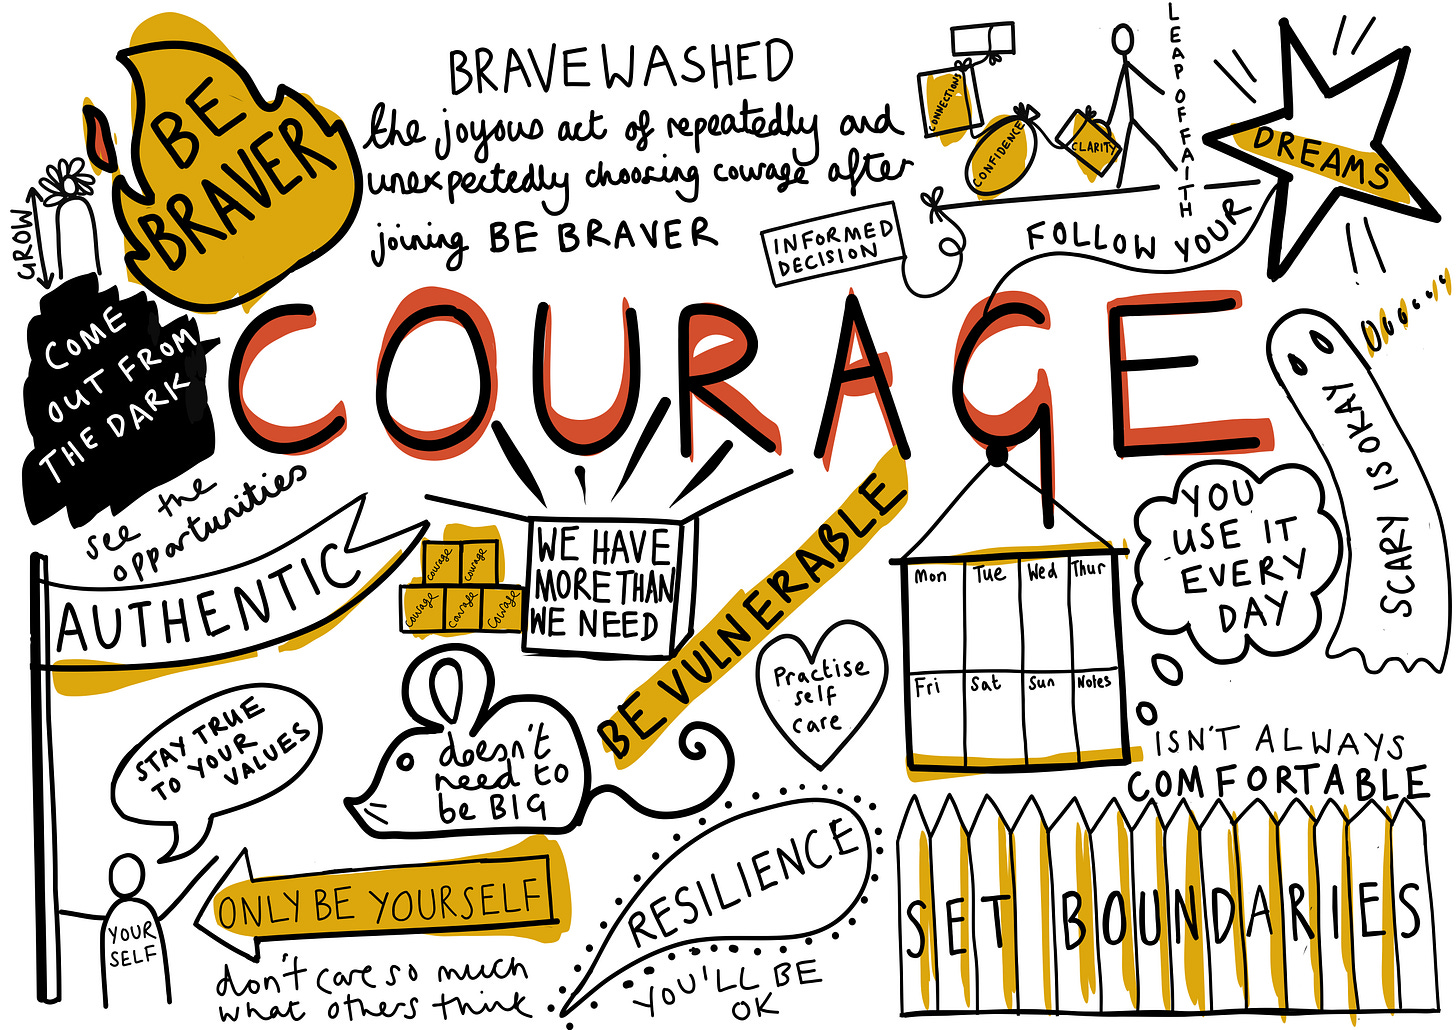 BE
BRAVER
BRAVEWASHED
the joyous act of repeatedly and
unexpectedly choosing courage after
joining BE BRAVER
CONNECTIONS
CONFIDENCE
CLARITY
LEAP OF FAITH
INFORMED
DECISION
FOLLOW YOUR
DREAMS
GROW
COME
OUT FROM
THE DARK
see the
opportunities
COURAGE
SCARY IS OKAY
AUTHENTIC
courage
courage
courage
courage
courage
WE HAVE
MORE THAN
WE NEED
BE VULNERABLE
Practise
self
care
Mon Tue Wed Thur
Fri Sat Sun Notes
YOU
USE IT
EVERY
DAY
ISN'T ALWAYS
COMFORTABLE
STAY TRUE
TO YOUR
VALUES
doesn't
need to
be BIG
YOUR
SELF
ONLY BE YOURSELF
don't care so much
what others think
RESILIENCE
YOU'LL BE
OK
SET BOUNDARIES